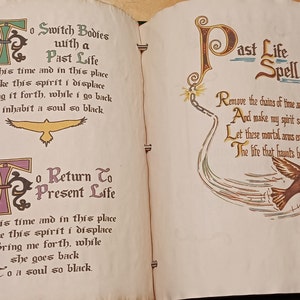 To Switch Bodies
with a
Past Life
this time and in this place
ke this spirit i displace
g it forth, while i go back
inhabit a soul so black
To Return To
Present Life
is time and in this place
e this spirit i displace
ring me forth, while
she goes back
To a soul so black.
Past Life
Spell
Remove the chains of time a
And make my spirit s
Let these mortal arms
The life that haunts